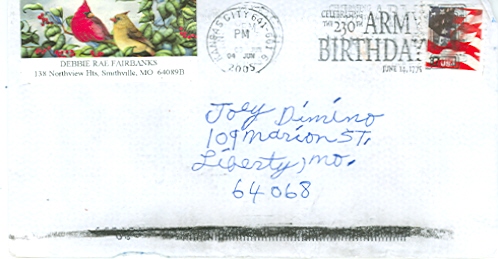 DEBBIE RAE FAIRBANKS
138 Northview Hts, Southville, MO 64089
KANSAS CITY 640-661
PM
04 JUN
2005
CELEBRATING
THE 230TH ARMY
BIRTHDAY
JUNE 14, 1775
USA
Joey Dimino
109 Marion ST.
Liberty, mo.
64068